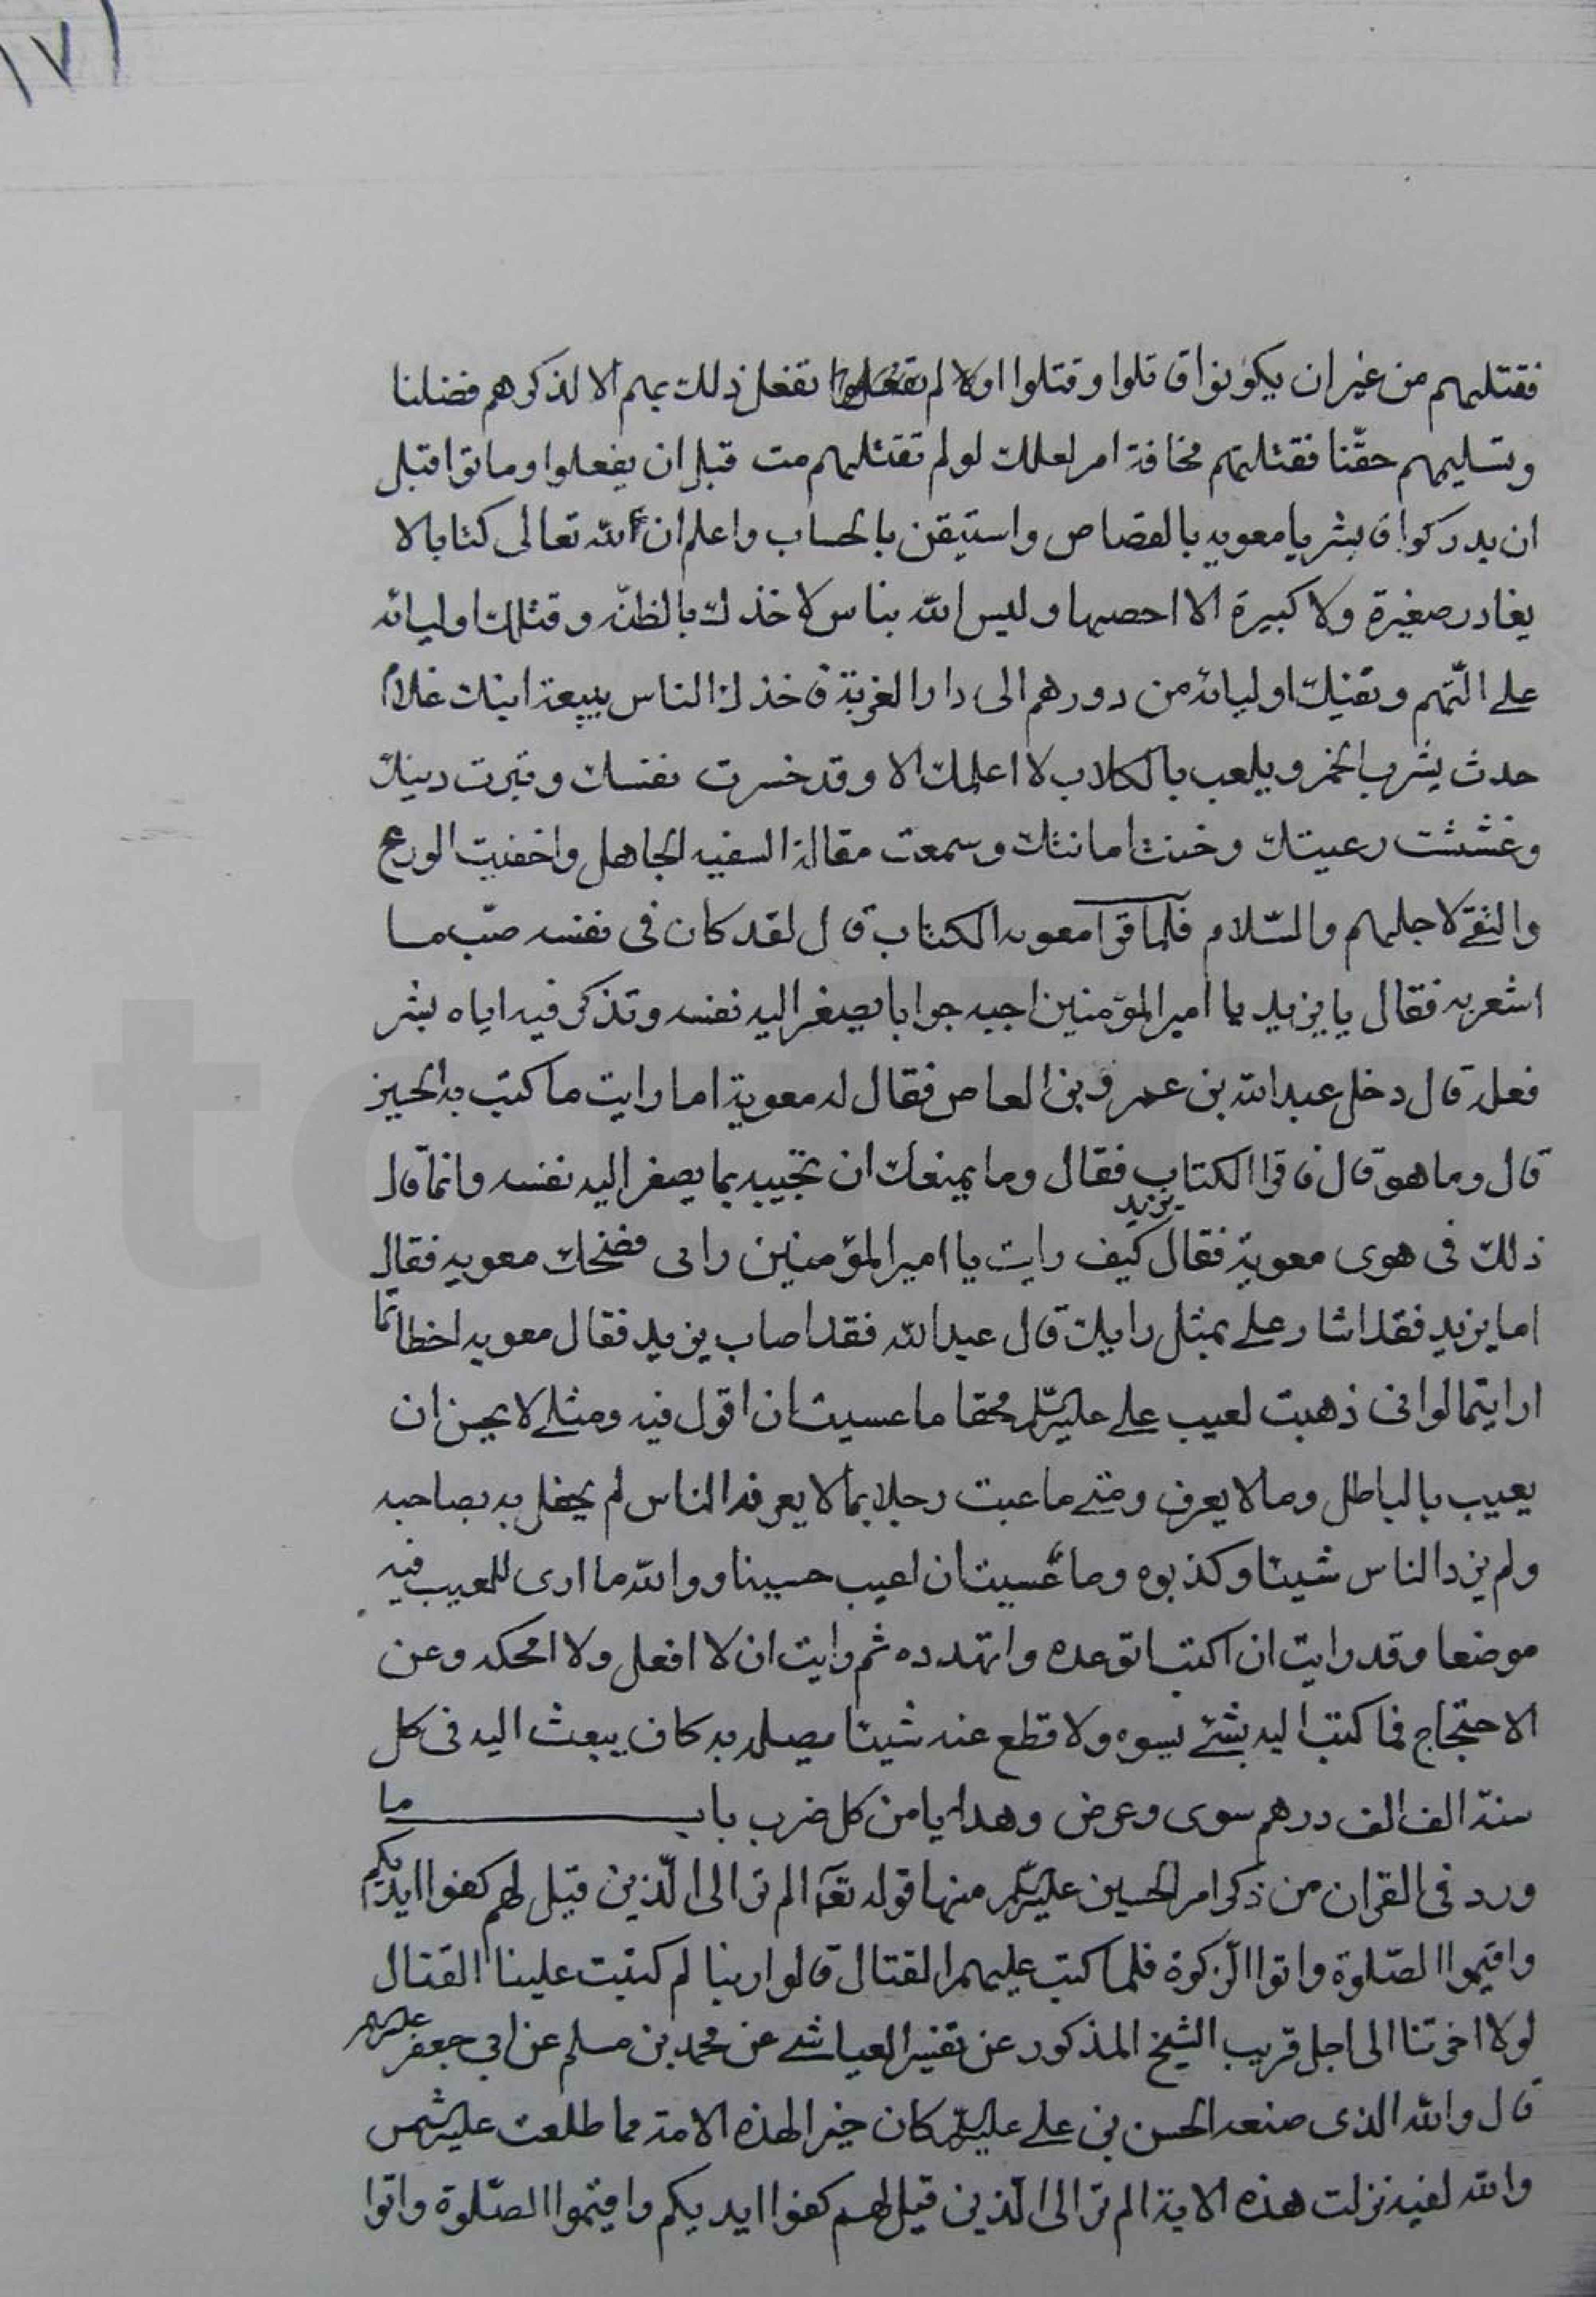 ١٧١
فقتلتهم من غير ان يكونوا قاتلوا وقتلوا اولا لم تفعل ذلك بهم الا لذكرهم فضلنا
وتسليمهم حقّنا فقتلتهم مخافة امر لعلك لو لم تقتلهم مت قبل ان يفعلوا وماتوا قبل
ان يدركوا فابشر يا معويه بالقصاص واستيقن بالحساب واعلم ان لله تعالى كتابا لا
يغادر صغيرة ولا كبيرة الا احصيها وليس الله بناس لاخذك بالظنّه وقتلك اوليائه
على التّهم ونفيك اوليائه من دورهم الى دار الغربة فاخذك الناس ببيعة ابنك غلام
حدث يشرب الخمر ويلعب بالكلاب لا اعلمك الا وقد خسرت نفسك وتبرت دينك
وغششت رعيتك وخنت امانتك وسمعت مقالة السفيه الجاهل واخفيت الورع
والتقى لاجلهم والسّلام فلما قرا معويه الكتاب قال لقد كان فى نفسه ضب ما
اشعر به فقال يا يزيد يا امير المؤمنين اجبه جوابا يصغر اليه نفسه وتذكر فيه اباه بشر
فعله قال دخل عبد الله بن عمرو بن العاص فقال له معوية اما رايت ما كتب به الحسين
قال وما هو قال فاقرا الكتاب فقال وما يمنعك ان تجيبه بما يصغر اليه نفسه وانما قال
ذلك فى هوى معوية فقال يزيد كيف رايت يا امير المؤمنين رايى فضحك معويه فقال
اما يزيد فقد اشار على بمثل رايك قال عبد الله فقد اصاب يزيد فقال معويه اخطاتما
ارايتما لو انى ذهبت لعيب على عليه السّلم محقا ما عسيت ان اقول فيه ومثلى لا يحسن ان
يعيب بالباطل وما لا يعرف ومتى ما عبت رجلا بما لا يعرفه الناس لم يحفل به بصاحبه
ولم يزد الناس شيئا وكذبوه وما عسيت ان اعيب حسينا ووالله ما ارى للعيب فيه
موضعا وقد رايت ان اكتب اتوعده واتهدده ثم رايت ان لا افعل ولا امحكه وعن
الاحتجاج فما كتب اليه بشئ يسوه ولا قطع عنه شيئا يصله به كان يبعث اليه فى كل
سنة الف الف درهم سوى وعرض وهدايا من كل ضرب باب ما
ورد فى القران من ذكر امر الحسين عليه السّلم منها قوله تعا الم تر الى الّذين قيل لهم كفوا ايديكم
واقيموا الصّلوة واتوا الزّكوة فلما كتب عليهم القتال قالوا ربنا لم كتبت علينا القتال
لولا اخرتنا الى اجل قريب الشيخ المذكور عن تفسير العياشى عن محمد بن مسلم عن ابى جعفر عليه السلم
قال والله الذى صنعه الحسن بن على عليه السّلم كان خيرا لهذه الامة مما طلعت عليه شمس
والله لفيه نزلت هذه الاية الم تر الى الّذين قيل لهم كفوا ايديكم واقيموا الصّلوة واتوا